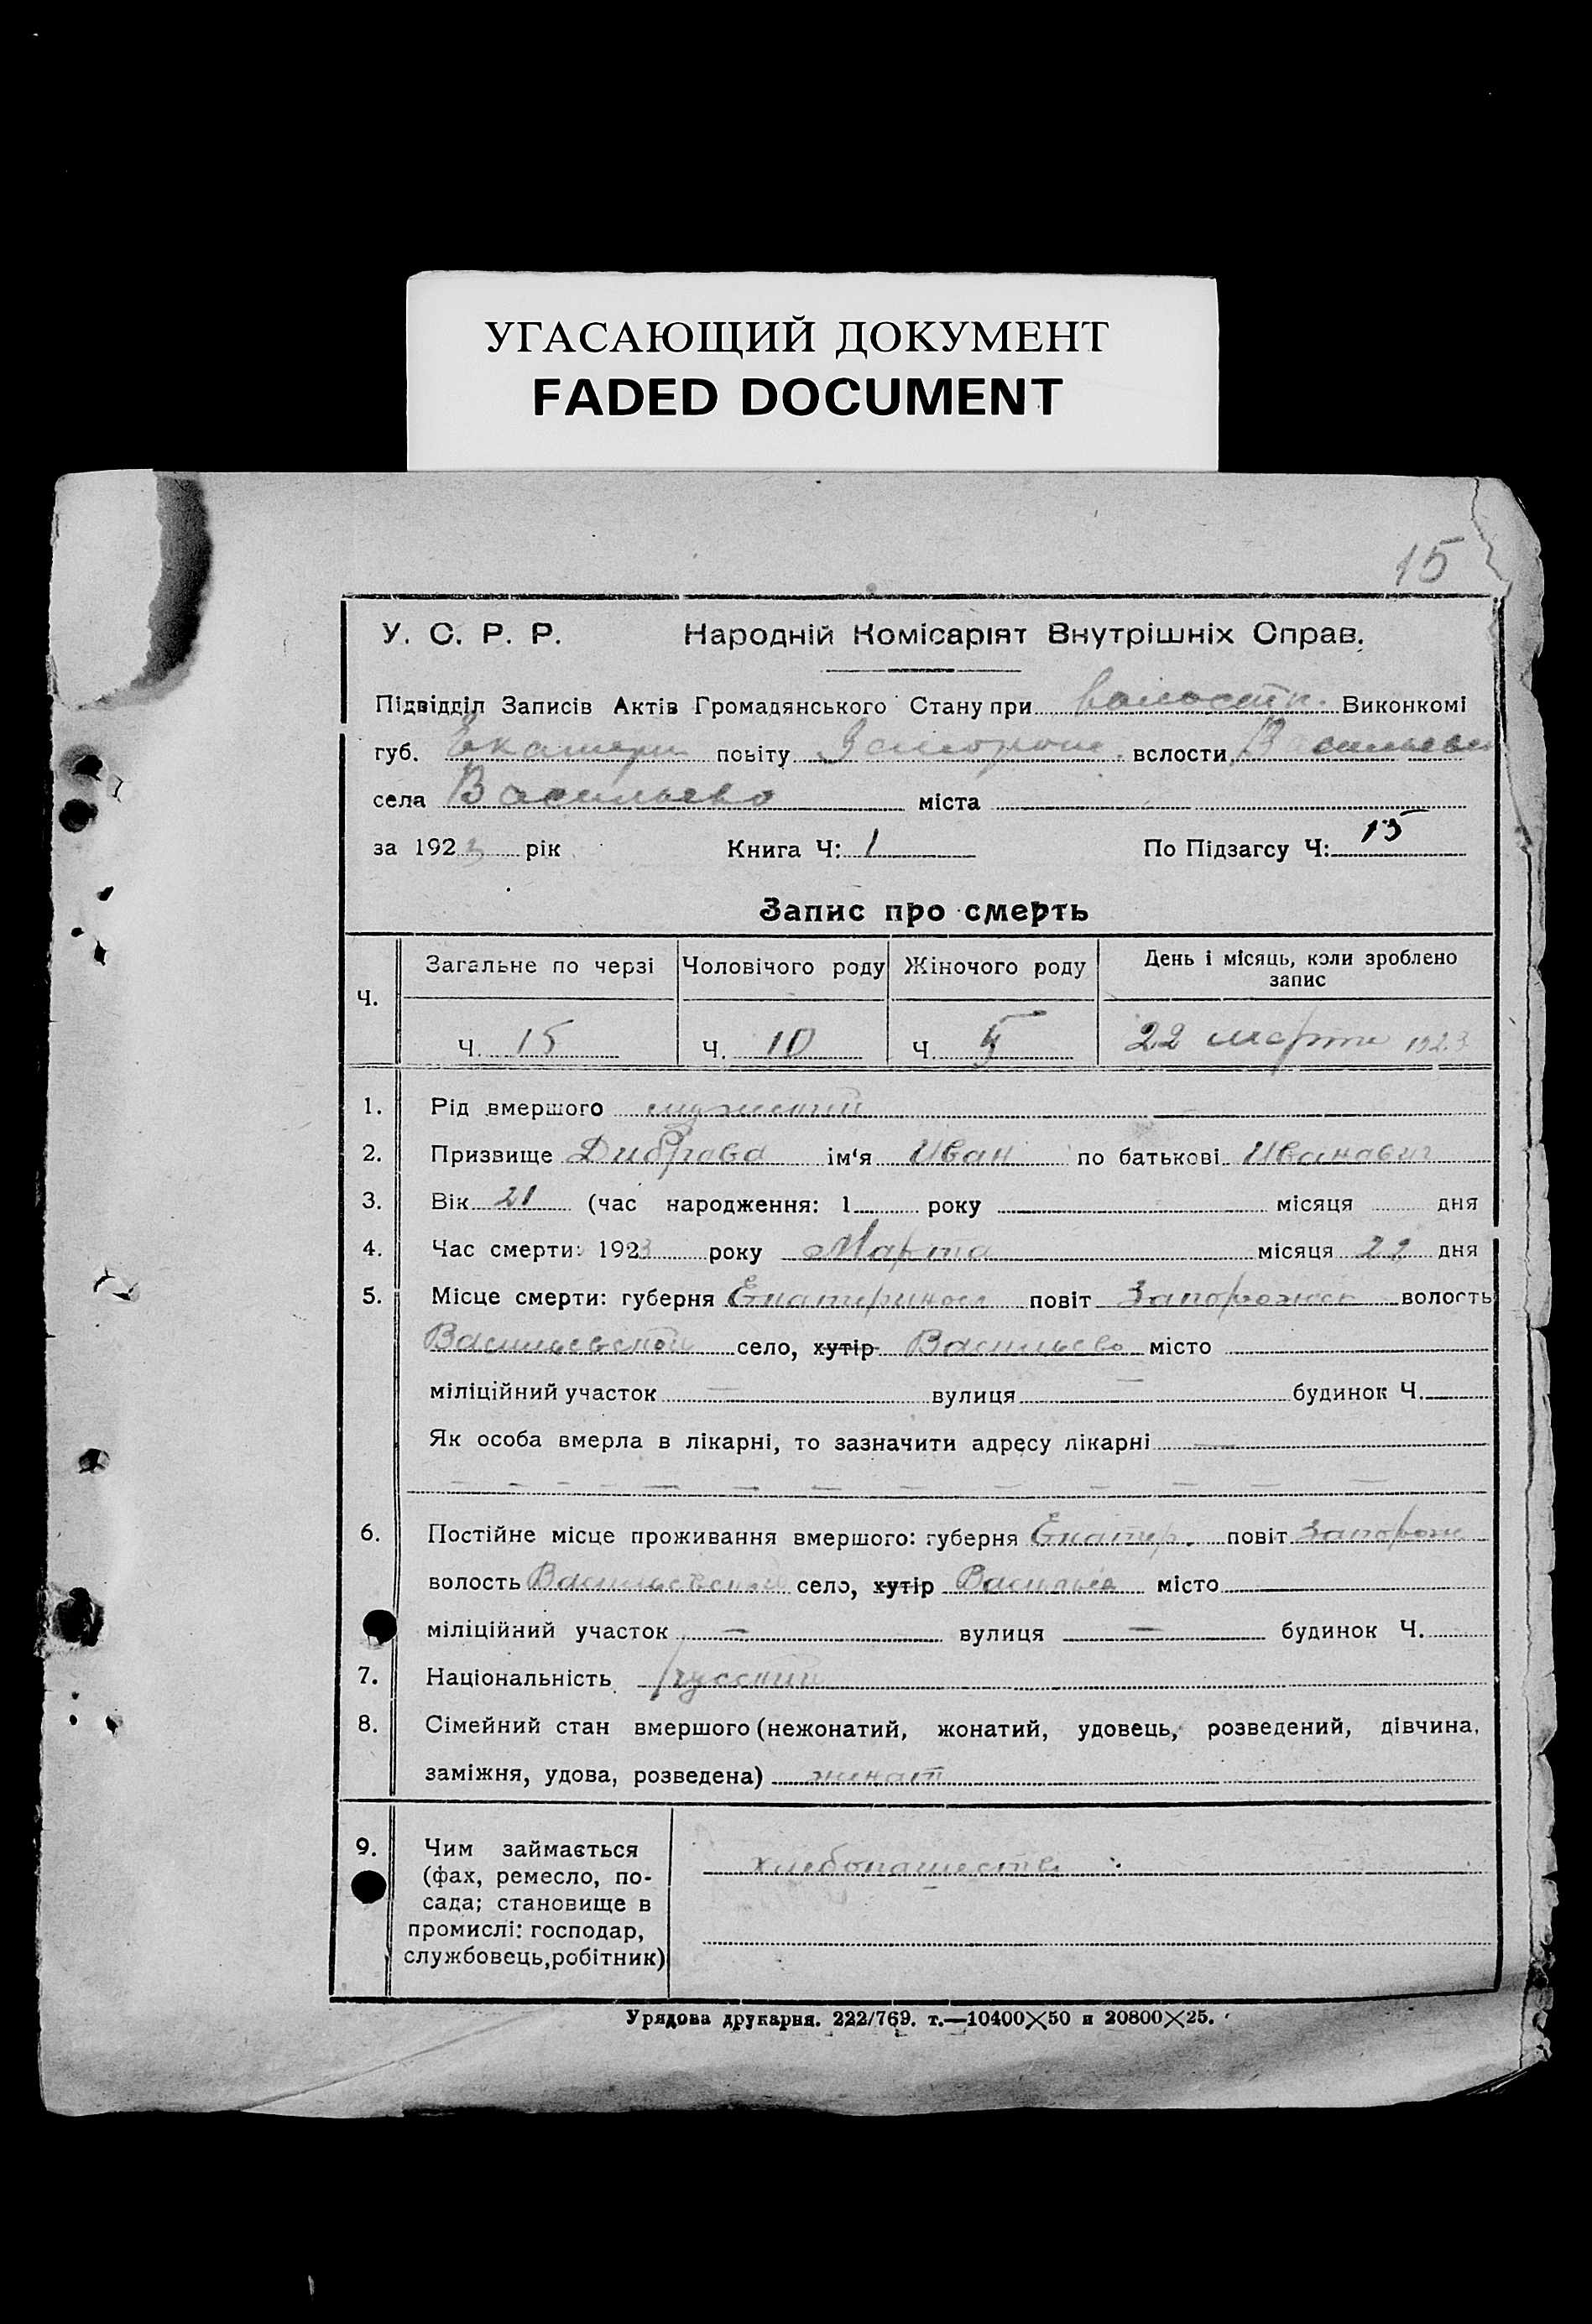 УГАСАЮЩИЙ ДОКУМЕНТ
FADED DOCUMENT
15
У. С. Р. Р. Народній Комісаріят Внутрішніх Справ.
Підвідділ Записів Актів Громадянського Стану при Виконкомі
губ. Екатери повіту Запорож. волости Васильевск
села Васильево міста
за 1923 рік Книга Ч: 1 По Підзагсу Ч: 15
Запис про смерть
Загальне по черзі Чоловічого роду Жіночого роду День і місяць, коли зроблено
запис
Ч.
Ч. 15 Ч. 10 Ч. 5 22 марта 1923
1. Рід вмершого мужский
2. Призвище Диброва ім'я Иван по батькові Иванович
3. Вік 21 (час народження: 1 року місяця дня
4. Час смерти: 1923 року Марта місяця 22 дня
5. Місце смерти: губерня Екатериносл повіт Запорожск волость
Васильевской село, хутір Васильево місто
міліційний участок — вулиця — будинок Ч.
Як особа вмерла в лікарні, то зазначити адресу лікарні —
— — — — — — — — — — — —
6. Постійне місце проживання вмершого: губерня Екатер. повіт Запорож
волость Васильевской село, хутір Василье місто
міліційний участок — вулиця — будинок Ч.
7. Національність русский
8. Сімейний стан вмершого (нежонатий, жонатий, удовець, розведений, дівчина,
заміжня, удова, розведена) женат
9. Чим займається хлебопашеств
(фах, ремесло, по-
сада; становище в
промислі: господар,
службовець, робітник)
Урядова друкарня. 222/769. т.—10400×50 и 20800×25.